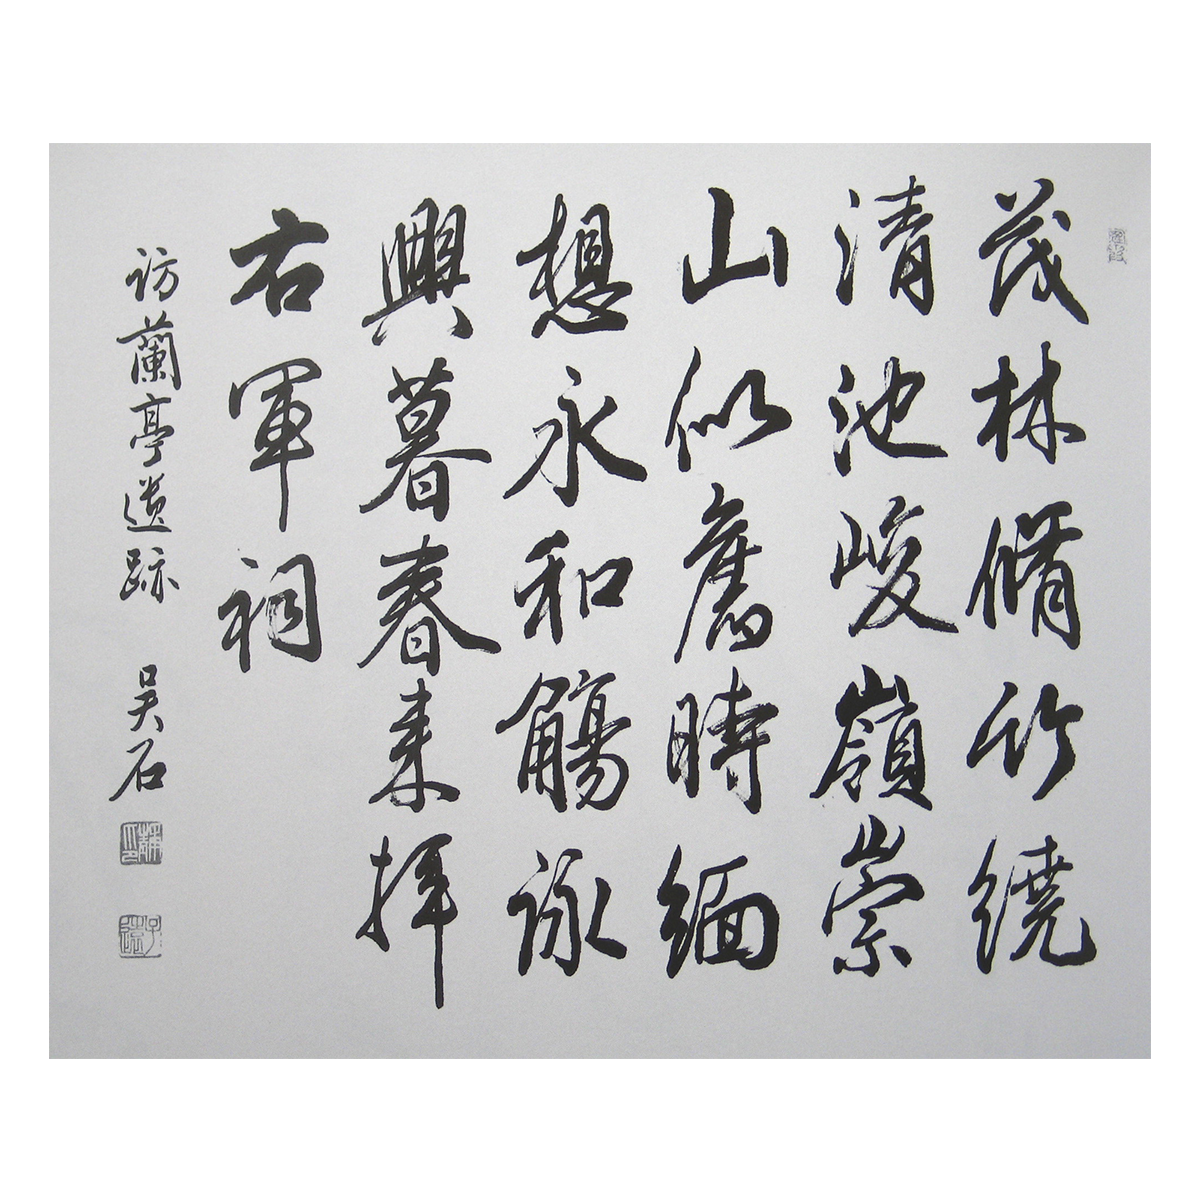 茂林脩竹繞
清池峻嶺崇
山似舊時緬
想永和觴詠
興暮春来拜
右軍祠
访蘭亭遗跡 吴石